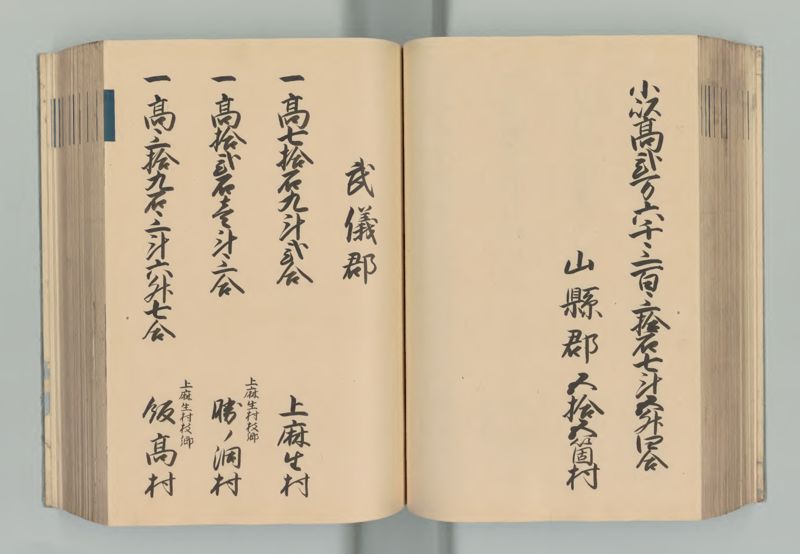 小以高弐万六千三百三拾石七斗五升四合
山縣郡 五拾五箇村
武儀郡
一 高七拾石九斗弐合 上麻生村
一 高拾弐石壱斗三合 上麻生村枝郷 勝ノ洞村
一 高三拾九石三斗六升七合 上麻生村枝郷 飯高村